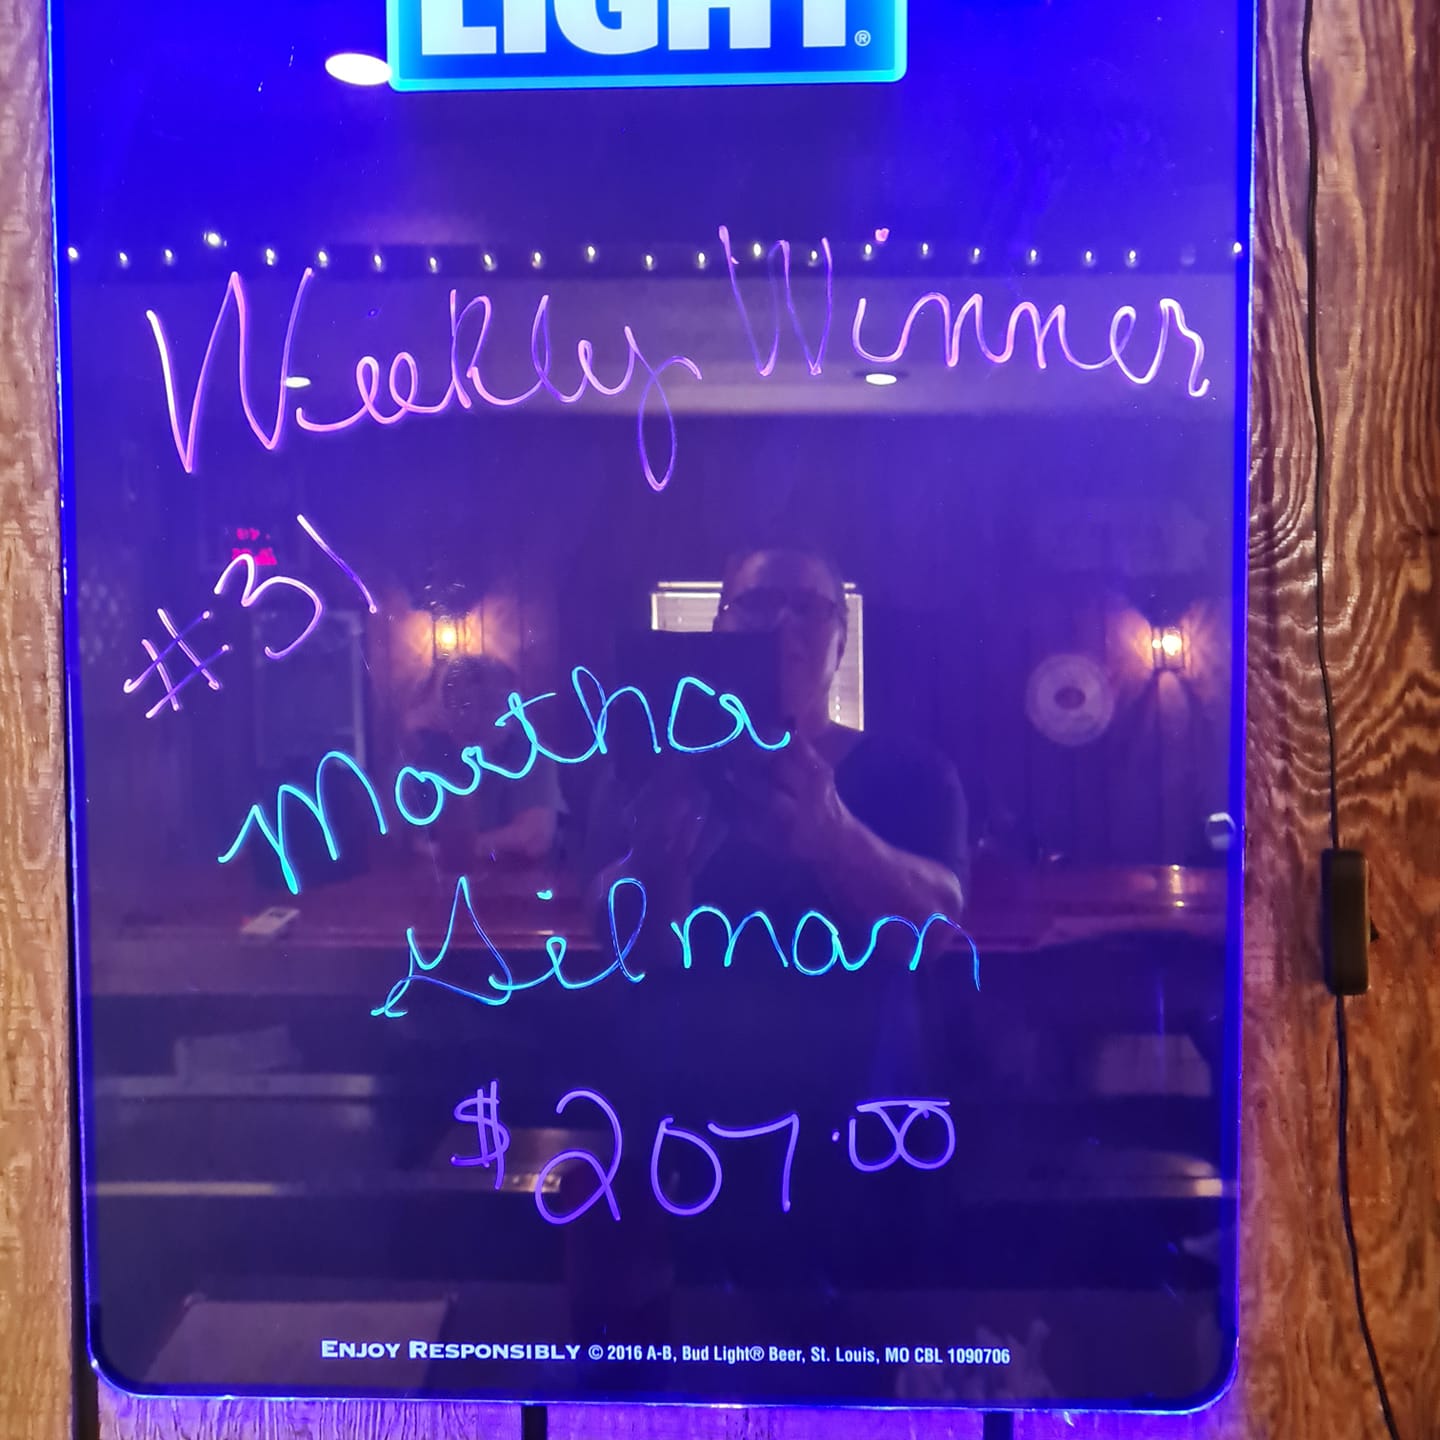 LIGHT®
Weekly Winner
#31
Martha
Gilman
$207.00
ENJOY RESPONSIBLY © 2016 A-B, Bud Light® Beer, St. Louis, MO CBL 1090706